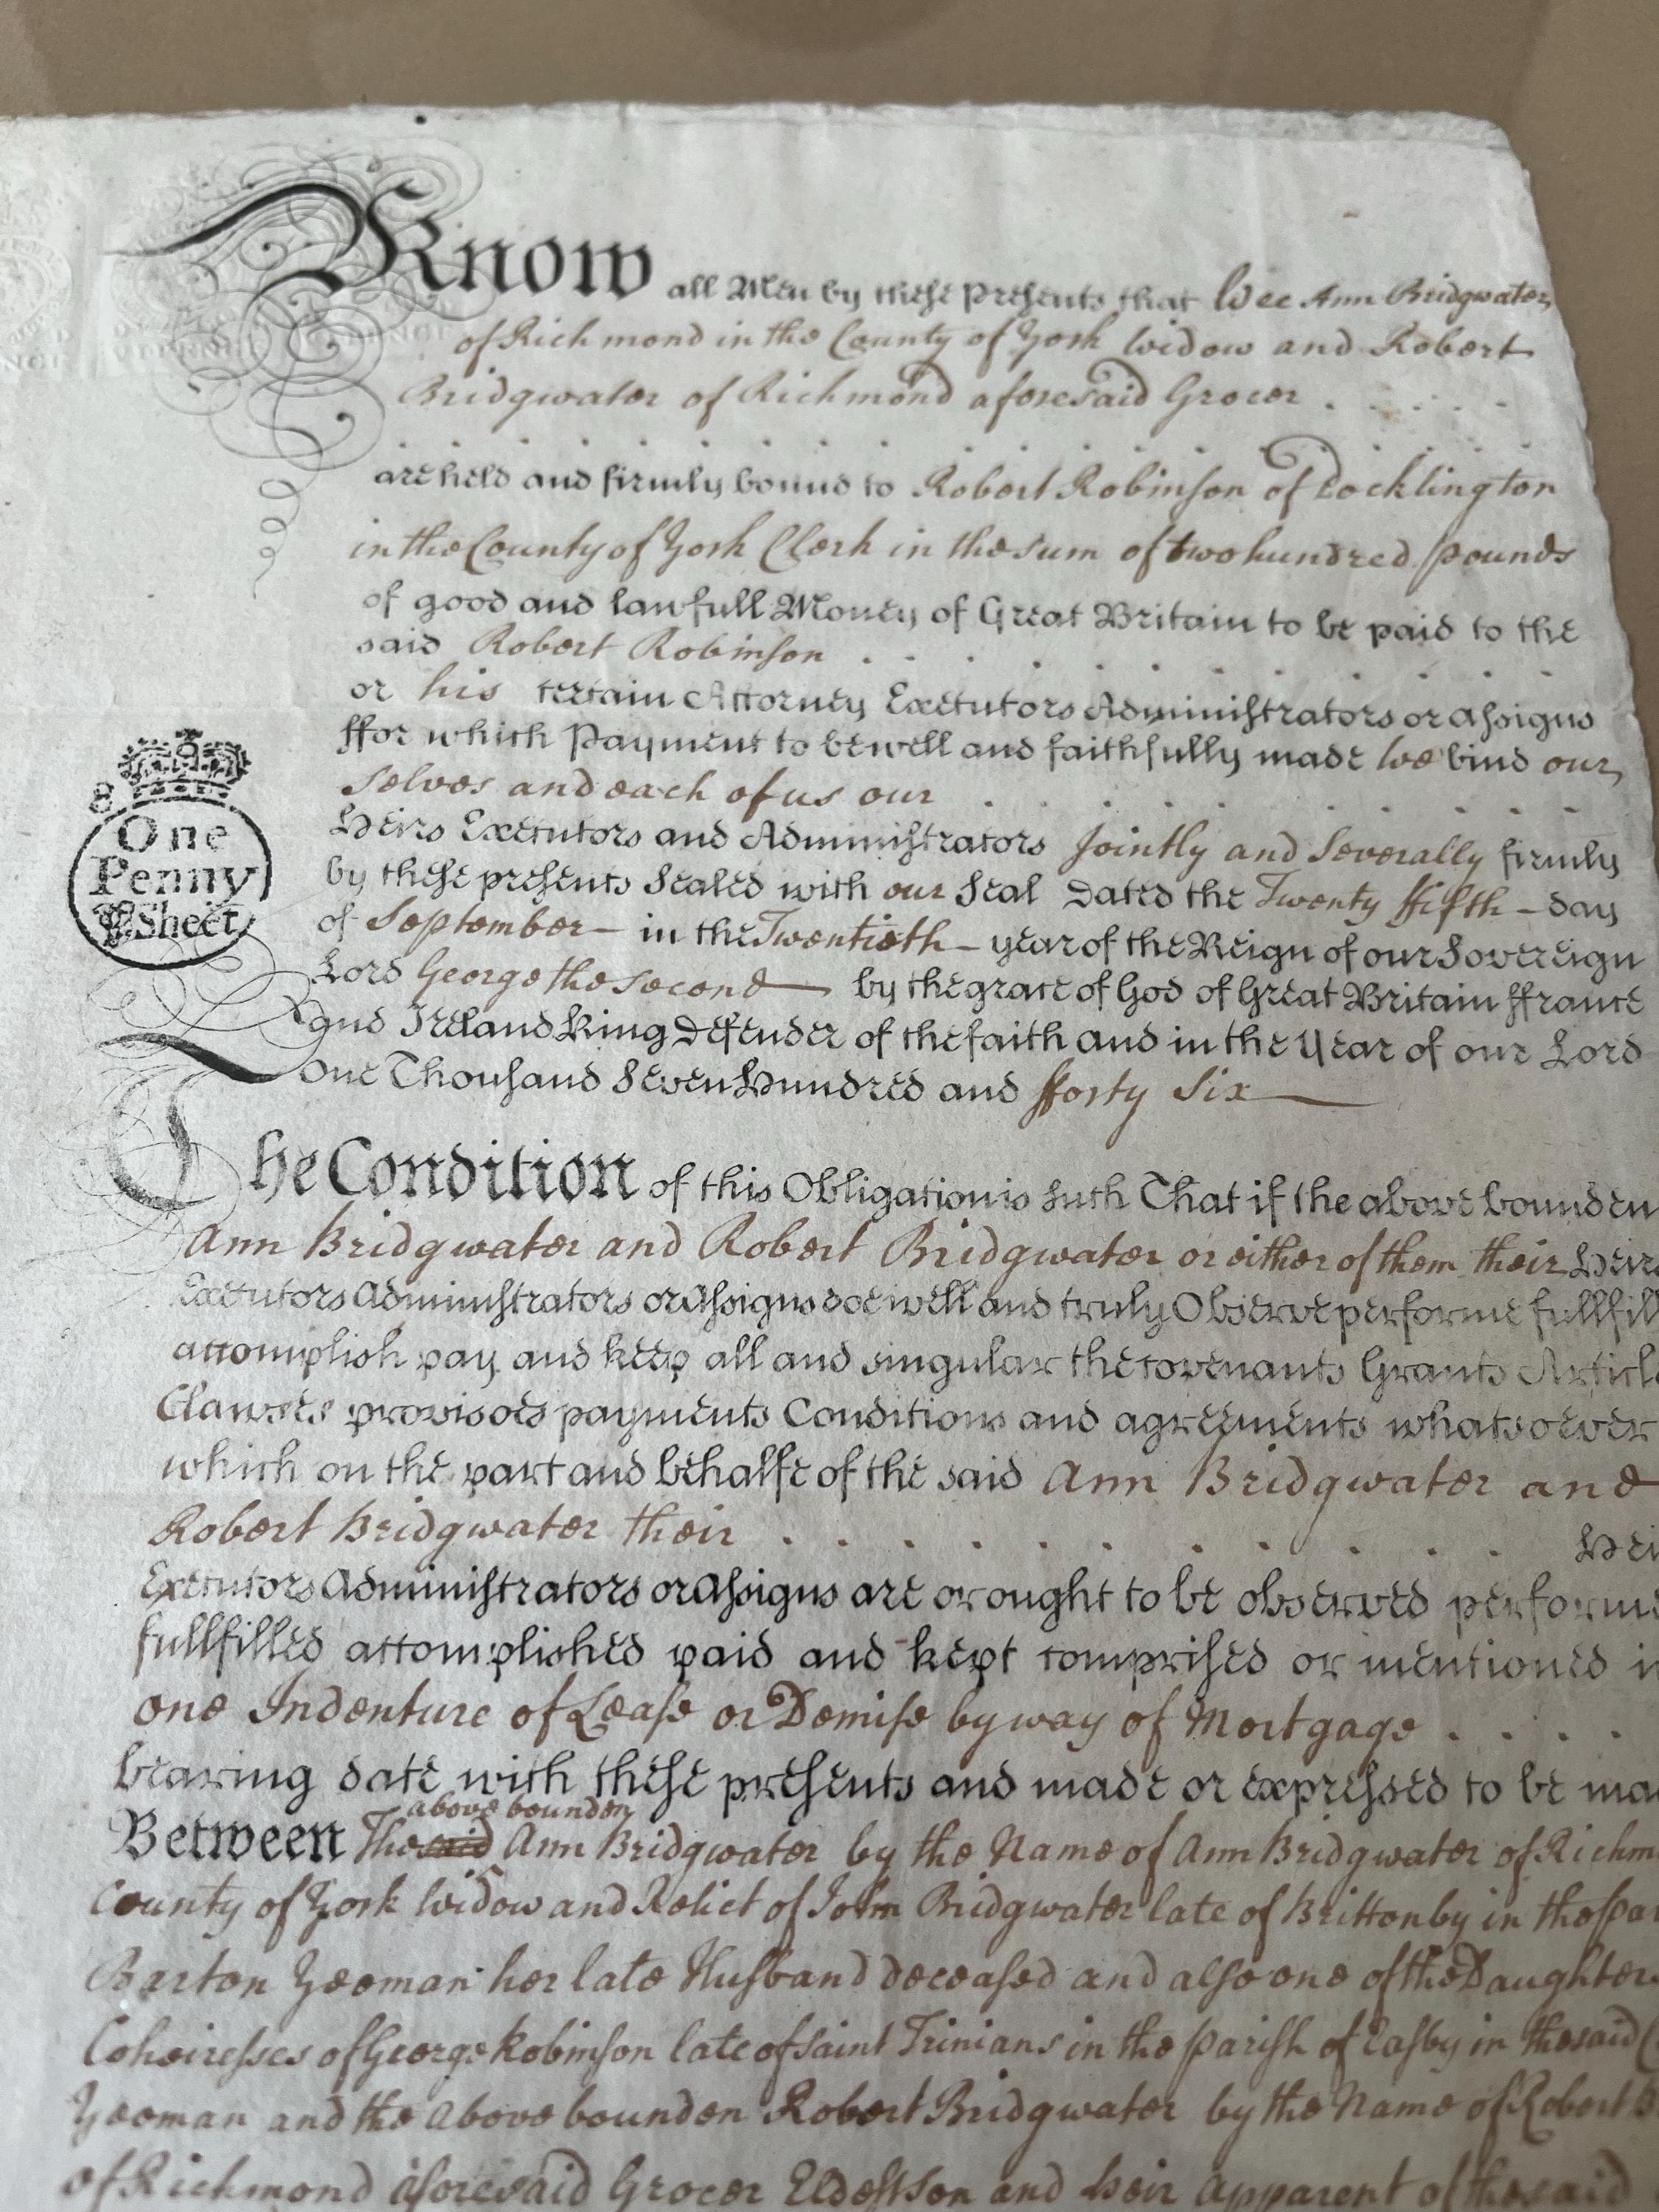 Know all Men by these Presents that Wee Ann Bridgwater
of Richmond in the County of York Widow and Robert
Bridgwater of Richmond aforesaid Grocer . . . . .
are held and firmly bound to Robert Robinson of Locklington
in the County of York Clerk in the sum of two hundred pounds
of good and lawfull Money of Great Britain to be paid to the
said Robert Robinson . . . . . . . . .
or his certain Attorney Executors Administrators or Assigns
ffor which Payment to be well and faithfully made We bind our
selves and each of us our . . . . . . . .
Heirs Executors and Administrators Jointly and Severally firmly
by these presents Sealed with our Seal Dated the Twenty ffifth – day
of September – in the Twentieth – year of the Reign of our Sovereign
Lord George the Second — by the grace of God of Great Britain ffrance
and Ireland King Defender of the faith and in the Year of our Lord
One Thousand Seven Hundred and fforty Six —
8
One
Penny
Sheet
The Condition of this Obligation is such That if the above bounden
Ann Bridgwater and Robert Bridgwater or either of them their Heirs
Executors Administrators or Assigns doe well and truly Observe performe fullfill
accomplish pay and keep all and singular the covenants Grants Article
Clawses provisoes payments Conditions and agreements whatsoever
which on the part and behalfe of the said Ann Bridgwater and
Robert Bridgwater their . . . . . . . . . . . Hei
Executors Administrators or Assigns are or ought to be observed performe
fullfilled accomplished paid and kept comprised or mentioned i
one Indenture of Lease or Demise by way of Mortgage . . . .
bearing date with these presents and made or expressed to be ma
above bounden
Between The said Ann Bridgwater by the Name of Ann Bridgwater of Richm
County of York Widow and Relict of John Bridgwater late of Brittonby in the par
Barton Yeoman her late Husband deceased and also one of the Daughter
Coheiresses of George Robinson late of Saint Trinians in the parish of Easby in the said
Yeoman and the above bounden Robert Bridgwater by the Name of Robert B
of Richmond aforesaid Grocer Eldest Son and heir apparent of the said